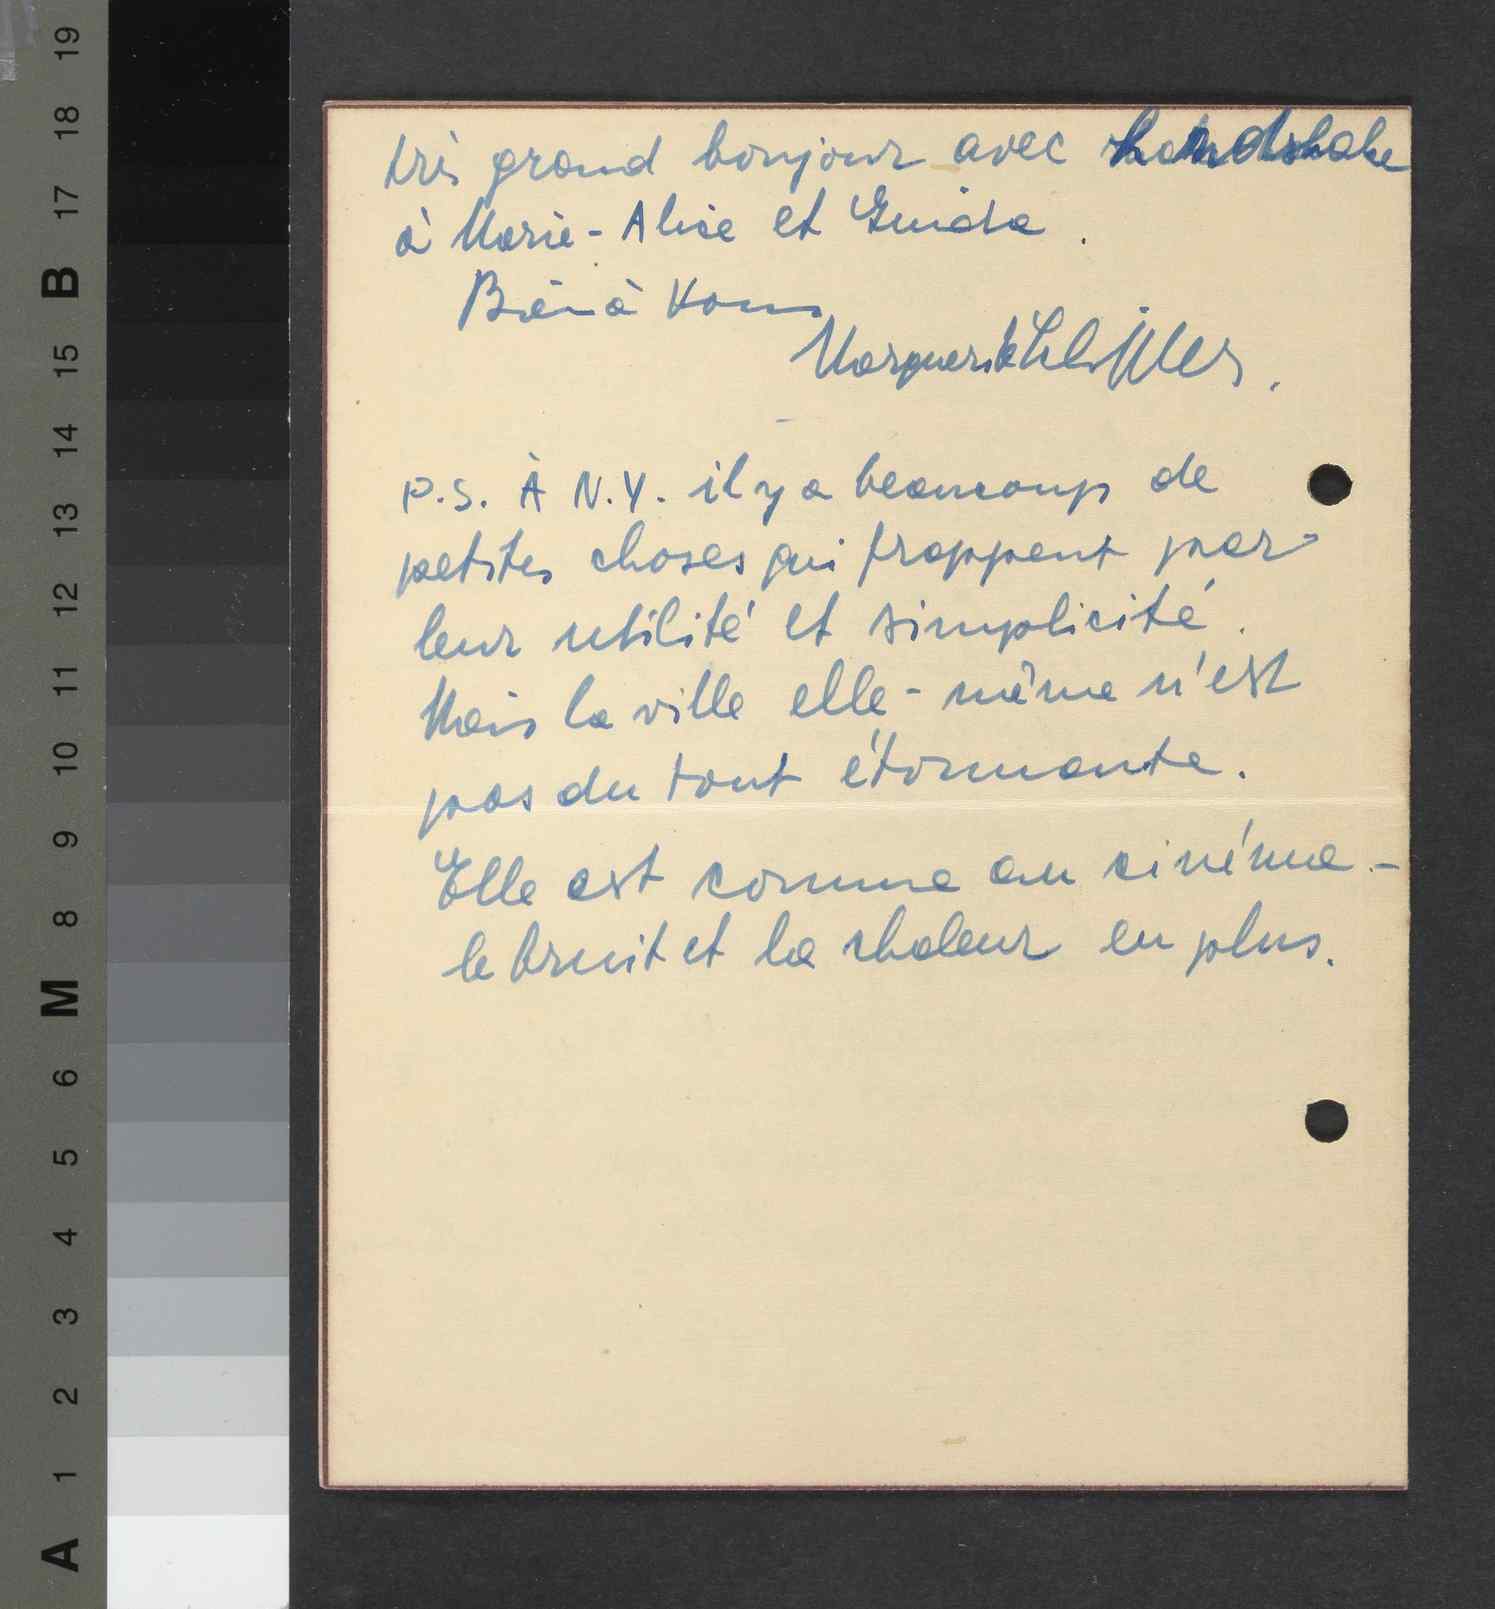 très grand bonjour avec handshake
à Marie-Alice et Guida.
Bien à Vous
Marguerite
P.S. À N.Y. il y a beaucoup de
petites choses qui frappent par
leur utilité et simplicité.
Mais la ville elle-même n'est
pas du tout étonnante.
Elle est comme au cinéma -
le bruit et la chaleur en plus.
19
18
17
B
15
14
13
12
11
10
9
8
M
6
5
4
3
2
1
A